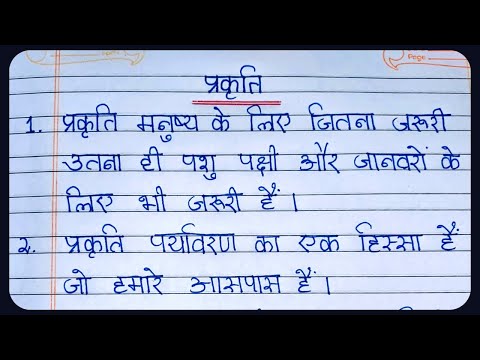 Page
प्रकृति
1. प्रकृति मनुष्य के लिए जितना जरूरी
उतना ही पशु पक्षी और जानवरों के
लिए भी जरूरी हैं।
2. प्रकृति पर्यावरण का एक हिस्सा हैं
जो हमारे आसपास हैं।